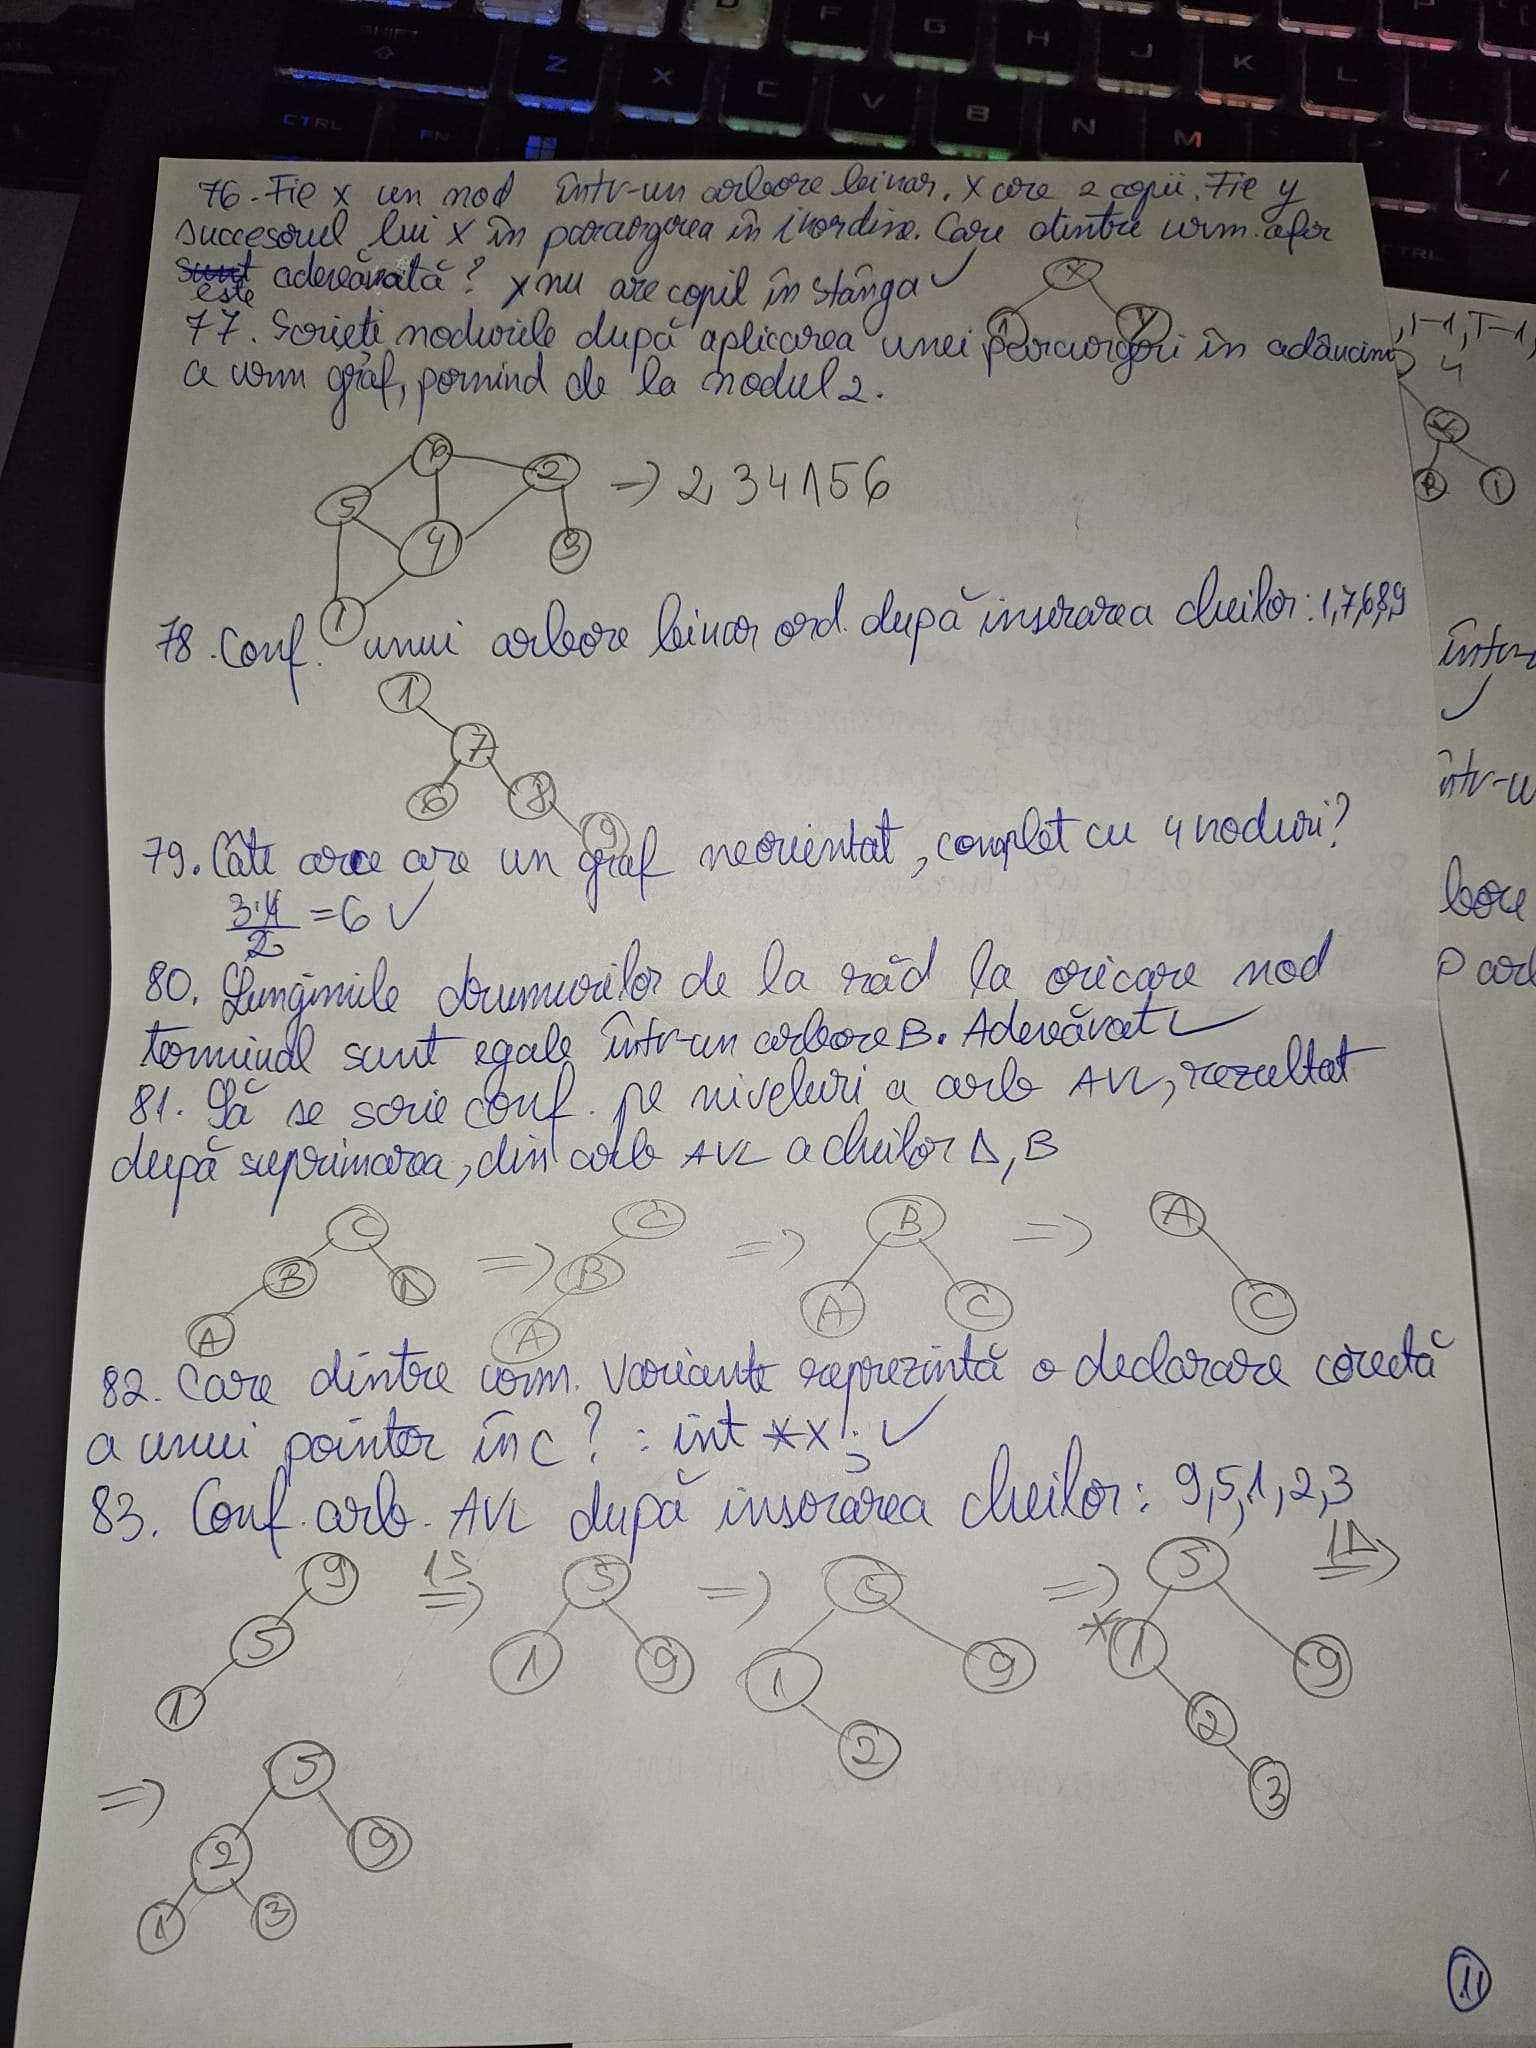 SHIFT
D F G H J K L P
Z X C V B N M
CTRL FN CTRL
76. Fie x un nod într-un arbore binar. x are 2 copii. Fie y
succesorul lui x în parcurgerea în inordine. Care dintre urm. afir
sunt este adevărată? x nu are copil în stânga ✓
X
1 Y
77. Scrieți nodurile după aplicarea unei parcurgeri în adâncim
a urm graf, pornind de la nodul 2.
6 2
5 4 3
1
=> 2 3 4 1 5 6
78. Conf. unui arbore binar ord. după inserarea cheilor: 1,7,6,8,9
1
7
6 8
9
79. Câte arce are un graf neorientat, complet cu 4 noduri?
3·4/2 = 6 ✓
80. Lungimile drumurilor de la răd la oricare nod
terminal sunt egale într-un arbore B. Adevărat ✓
81. Să se scrie conf. pe niveluri a arb AVL, rezultat
după suprimarea, din arb AVL a cheilor D, B
C => C => B => A
B D B A C C
A A
82. Care dintre urm. variante reprezintă o declarare corectă
a unui pointer în C? : int **x; ✓
83. Conf. arb. AVL după inserarea cheilor: 9,5,1,2,3
9 1S => 5 => 5 => 5 1D =>
5 1 9 1 9 *1 9
1 2 2
3
=> 5
2 9
1 3
11
, T-1, T-1,
4
R 1
într-
✓
într-u
bore
arb